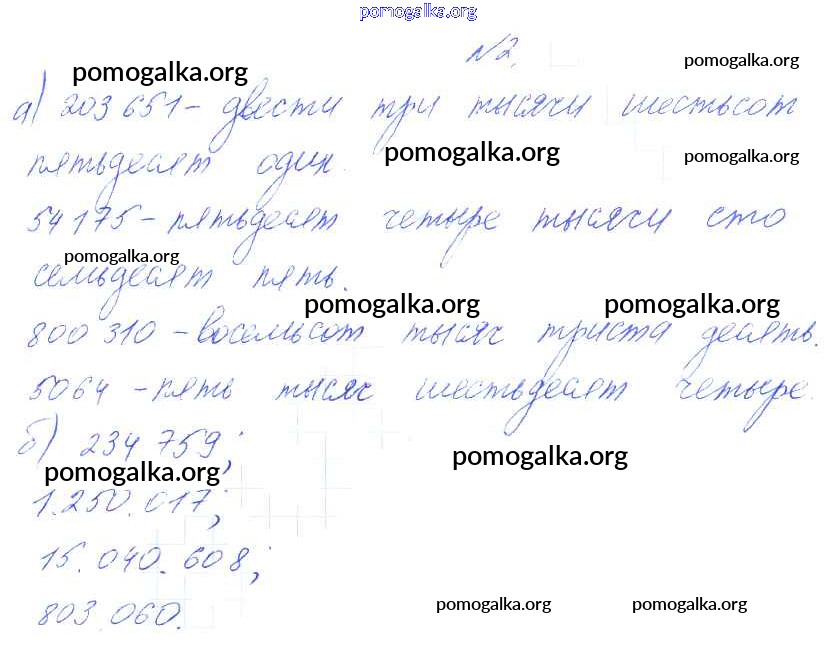 pomogalka.org
№2.
pomogalka.org pomogalka.org
а) 203 651 – двести три тысячи шестьсот
пятьдесят один. pomogalka.org pomogalka.org
54 175 – пятьдесят четыре тысячи сто
pomogalka.org
семьдесят пять.
pomogalka.org pomogalka.org
800 310 – восемьсот тысяч триста десять.
5064 – пять тысяч шестьдесят четыре.
б) 234 759;
pomogalka.org pomogalka.org
1.250.017;
15.040.608;
pomogalka.org pomogalka.org
803.060.